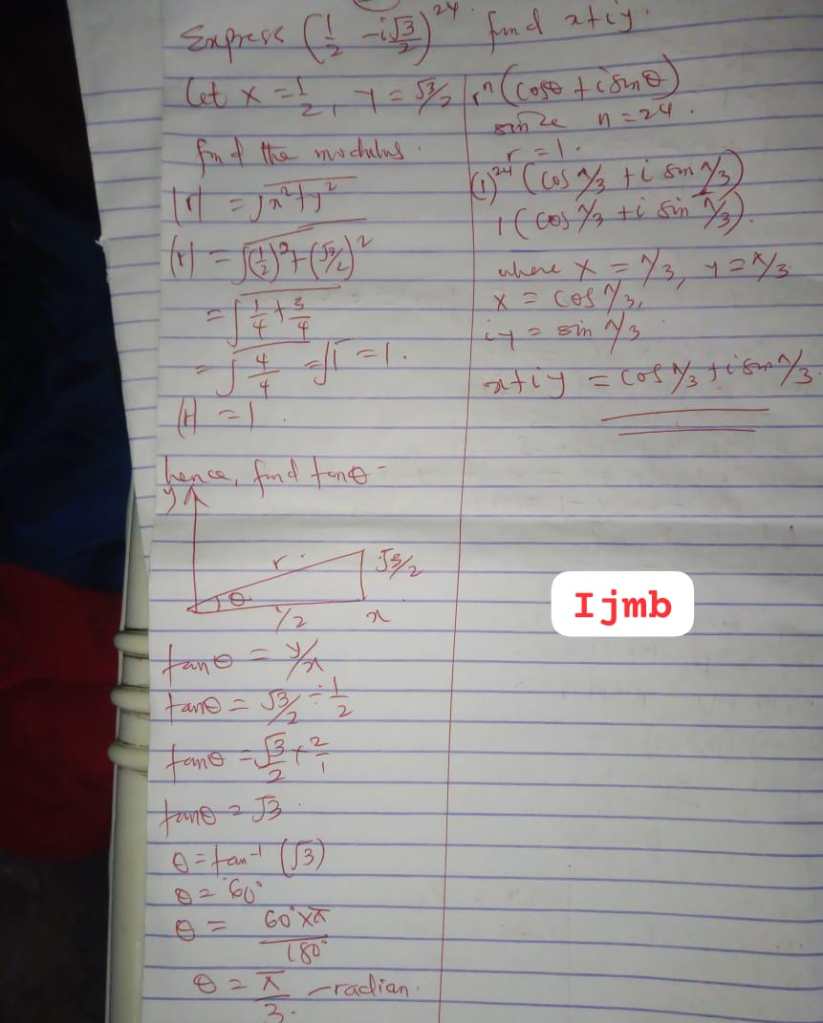 Express (1/2 - i√3/2)^24 find x+iy.
Let x = 1/2, y = √3/2
find the modulus.
|r| = √x²+y²
|r| = √(1/2)²+(√3/2)²
= √1/4+3/4
= √4/4 = √1 = 1.
|r| = 1.
hence, find tanθ-
y
r
√3/2
θ
1/2 x
tanθ = y/x
tanθ = √3/2 ÷ 1/2
tanθ = √3/2 × 2/1
tanθ = √3
θ = tan-1 (√3)
θ = 60°
θ = 60°×π/180°
θ = π/3. -radian.
r^n (cosθ + i sinθ)
since n = 24.
r = 1.
(1)^24 (cos π/3 + i sin π/3)
1 (cos π/3 + i sin π/3).
where x = π/3, y = π/3
x = cos π/3,
iy = sin π/3
x+iy = cos π/3 + i sin π/3
Ijmb